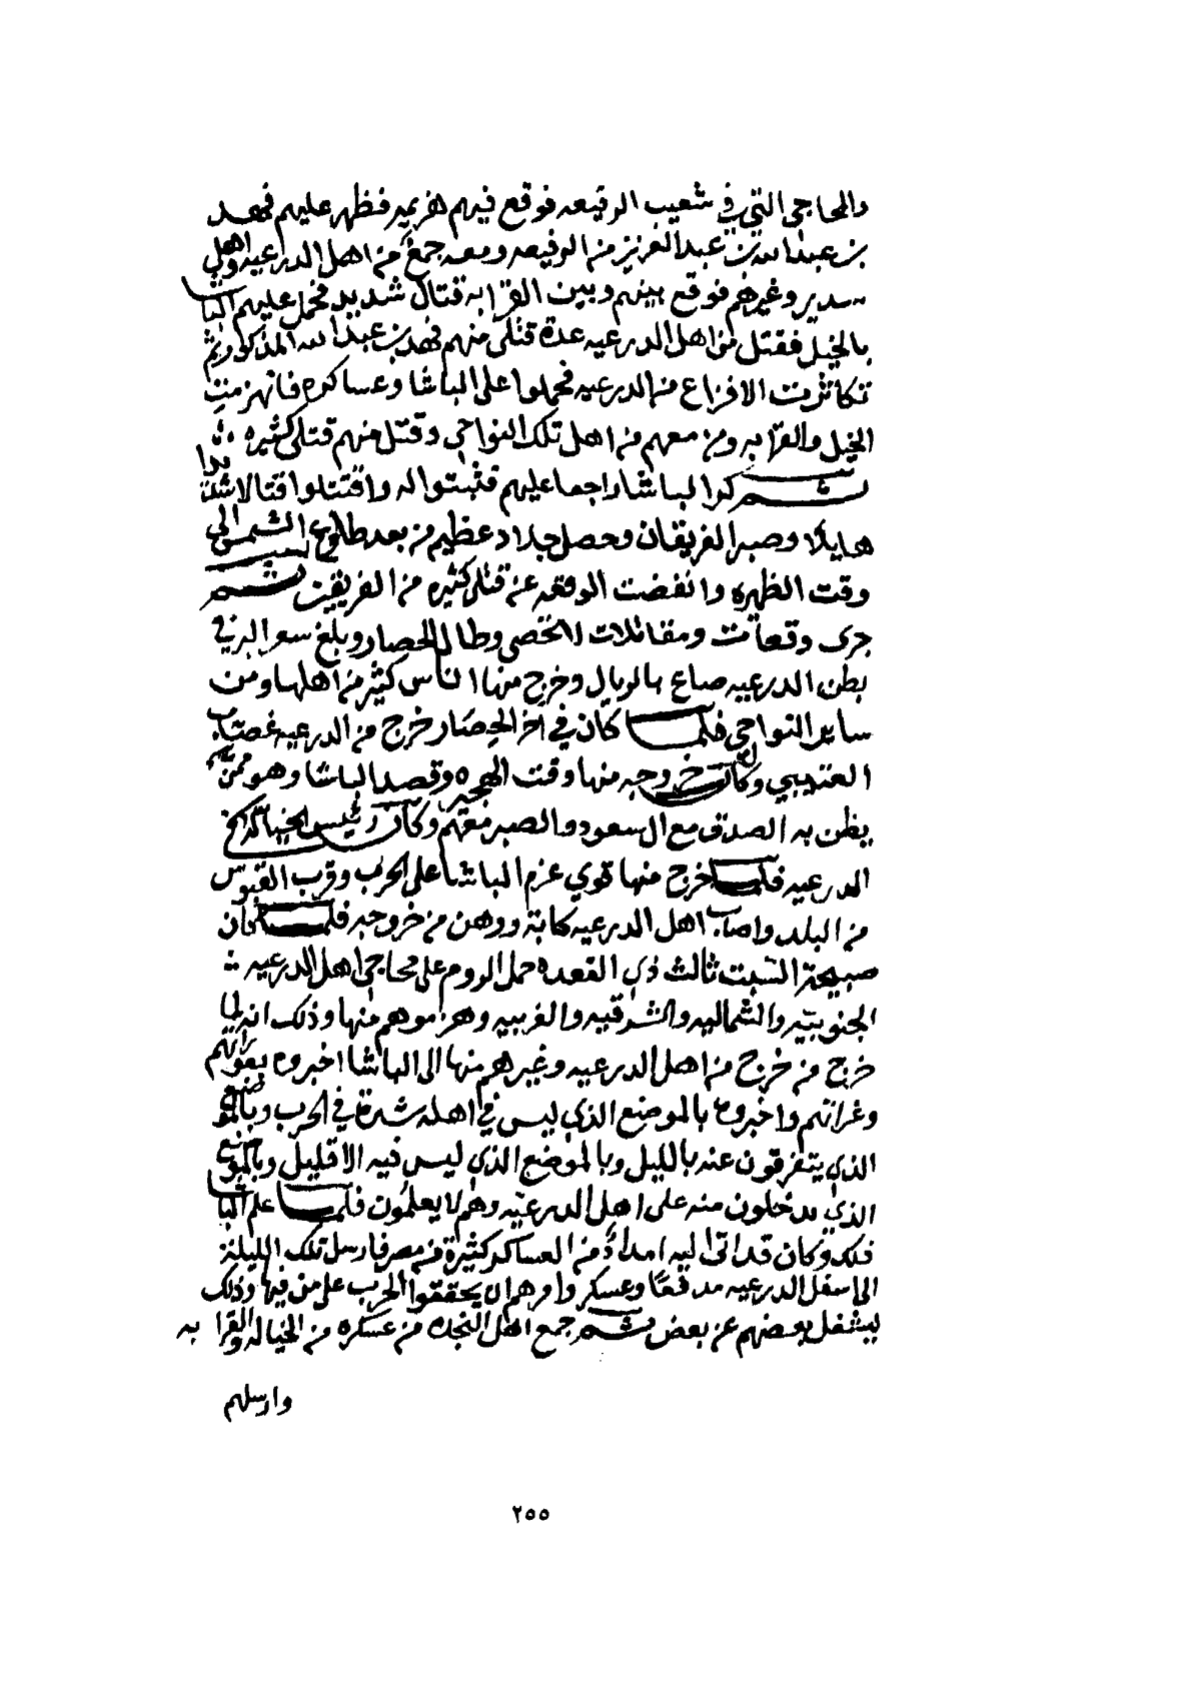 والمحاجي التي في شعيب الرفيعه فوقع فيهم هزيمه فظهر عليهم فهد
بن عبدالله بن عبدالعزيز من الرفيعه ومعه جمع من اهل الدرعيه واهل
سدير وغيرهم فوقع بينهم وبين القرابه قتال شديد فحمل عليهم الباشا
بالخيل فقتل من اهل الدرعيه عدة قتلى منهم فهد بن عبدالله المذكور ثم
تكاثرت الافزاع من الدرعيه فحملوا على الباشا وعساكره فانهزمت
الخيل والقرابه ومن معهم من اهل تلك النواحي وقتل منهم قتلى كثيره
ثم كر الباشا راجعا عليهم فثبتوا له واقتتلوا قتالا شديدا
هايلا وصبر الفريقان وحصل جلاد عظيم من بعد طلوع الشمس الى
وقت الظهره وانفضت الوقعه عن قتلى كثيره من الفريقين ثم
جرى وقعات ومقاتلات لا تحصى وطال الحصار وبلغ سعر البر في
بطن الدرعيه صاع بالريال وخرج منها اناس كثير من اهلها ومن
ساير النواحي فلما كان في اخر الحصار خرج من الدرعيه غصاب
العتيبي وكان خروجه منها وقت الهجيره وقصد الباشا وهو ممن
يظن به الصدق مع ال سعود والصبر معهم وكان رئيس الخياله
الدرعيه فلما خرج منها قوي عزم الباشا على الحرب وقرب القبوس
من البلد واصاب اهل الدرعيه كابة ووهن من خروجه فلما كان
صبيحة السبت ثالث ذي القعده حمل الروم على محاجي اهل الدرعيه
الجنوبيه والشماليه والشرقيه والغربيه وهزموهم منها وذلك انه لما
خرج من خرج من اهل الدرعيه وغيرهم منها الى الباشا اخبروه بعوراتهم
وغراتهم واخبروه بالموضع الذي ليس في اهله شدة في الحرب وبالموضع
الذي يتفرقون عنه بالليل وبالموضع الذي ليس فيه الا قليل وبالموضع
الذي يدخلون منه على اهل الدرعيه وهم لا يعلمون فلما علم الباشا
ذلك وكان قد اتى اليه امداد من العساكر كثيرة من مصر فارسل تلك الليلة
الى اسفل الدرعيه مدفعا وعسكر وامرهم ان يحققوا الحرب على من فيها وذلك
ليشغل بعضهم عن بعض ثم جمع اهل النجده من عسكره من الخياله والقرابه
وارسلهم
٢٥٥